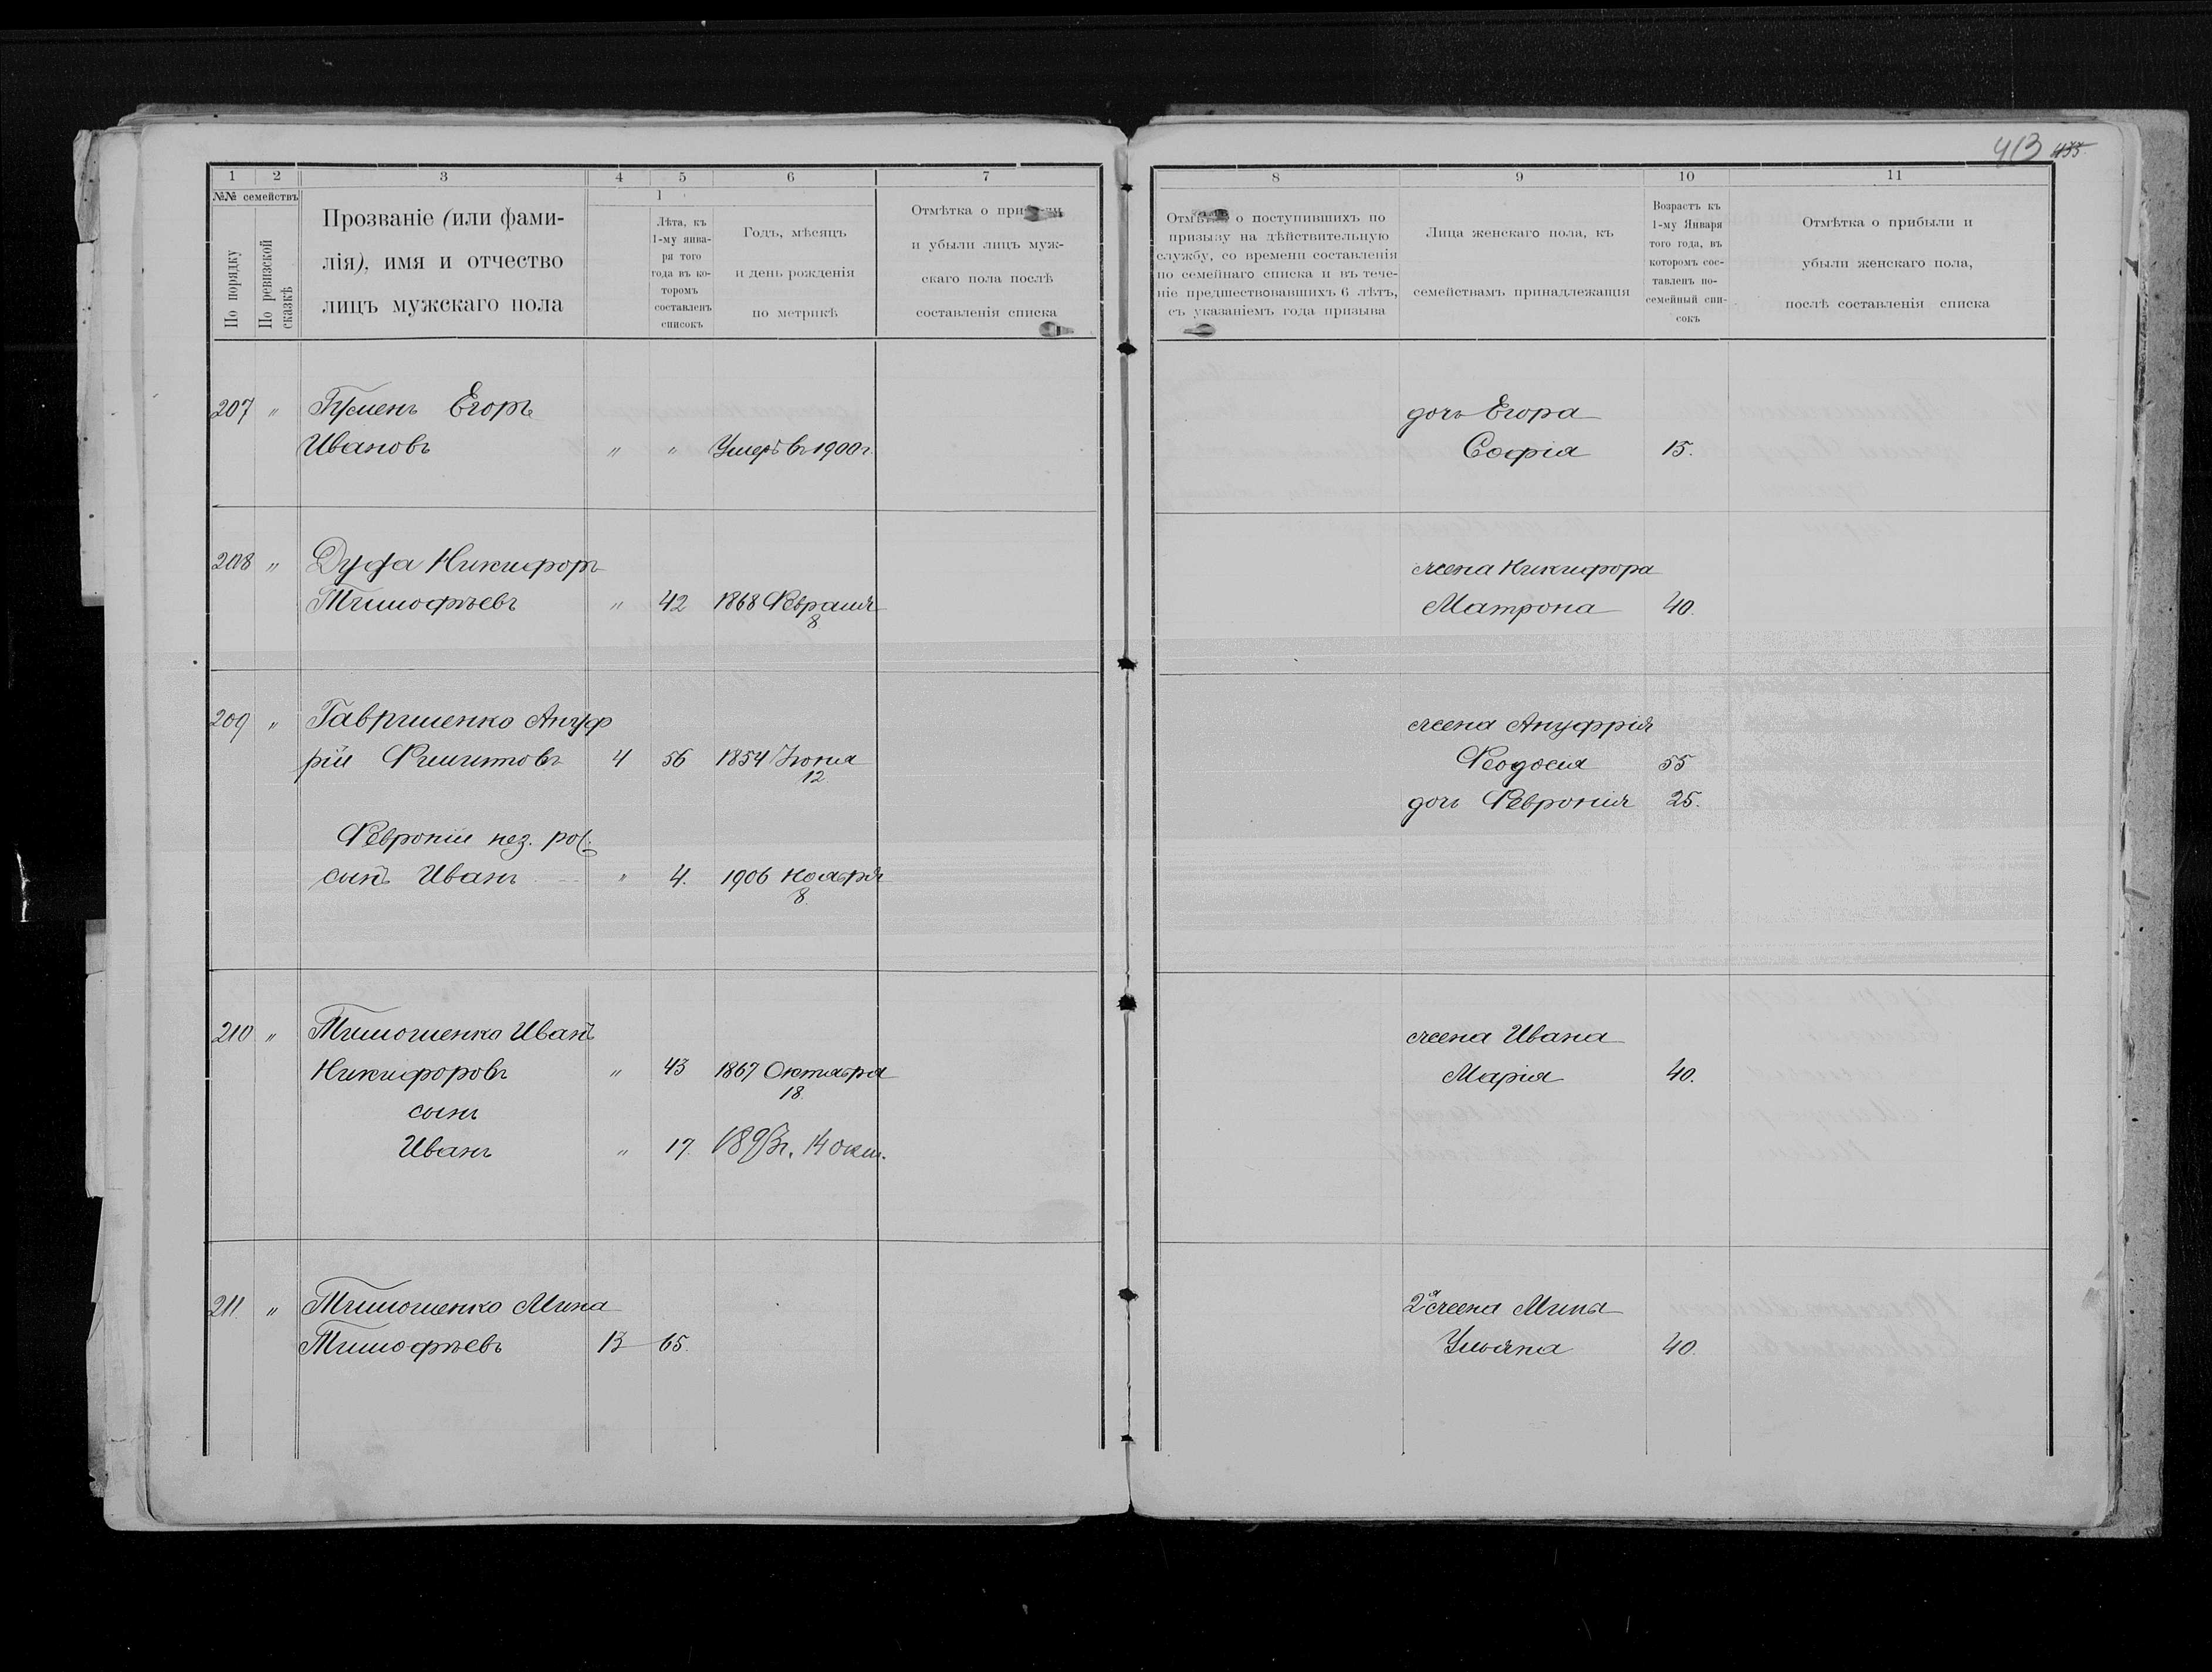 413 435.
1 2 3 4 5 6 7
№№ семействъ
По порядку
По ревизской сказкѣ
Прозваніе (или фами-
лія), имя и отчество
лицъ мужскаго пола
Лѣта, къ
1-му янва-
ря того
года въ ко-
торомъ
составленъ
списокъ
Годъ, мѣсяцъ
и день рожденія
по метрикѣ
Отмѣтка о прибыли
и убыли лицъ муж-
скаго пола послѣ
составленія списка
8 9 10 11
Отмѣтка о поступившихъ по
призыву на дѣйствительную
службу, со времени составленія
по семейнаго списка и въ тече-
ніе предшествовавшихъ 6 лѣтъ,
съ указаніемъ года призыва
Лица женскаго пола, къ
семействамъ принадлежащія
Возрастъ къ
1-му Января
того года, въ
которомъ сос-
тавленъ по-
семейный спи-
сокъ
Отмѣтка о прибыли и
убыли женскаго пола,
послѣ составленія списка
207 " Егоръ
Ивановъ " " Умеръ въ 1900 г.
дочь Егора
Софія 15.
208 " Дуда Никифоръ
Тимофѣевъ " 42 1868 Февраля
8
жена Никифора
Матрона 40.
209 " Гавриленко Ануф
рій Филиповъ 4 56 1854 Іюня
12
жена Ануфрія
Феодосія 55
дочь Февронія 25.
Февроніи нез. рож.
сынъ Иванъ " 4. 1906 Ноября
8
210 " Тимошенко Иванъ
Никифоровъ " 43 1867 Октября
18
сынъ
Иванъ " 17. 1893 г. 14 окт.
жена Ивана
Марія 40.
211 " Тимошенко Мина
Тимофѣевъ 13 65.
2я жена Мины
Ульяна 40.